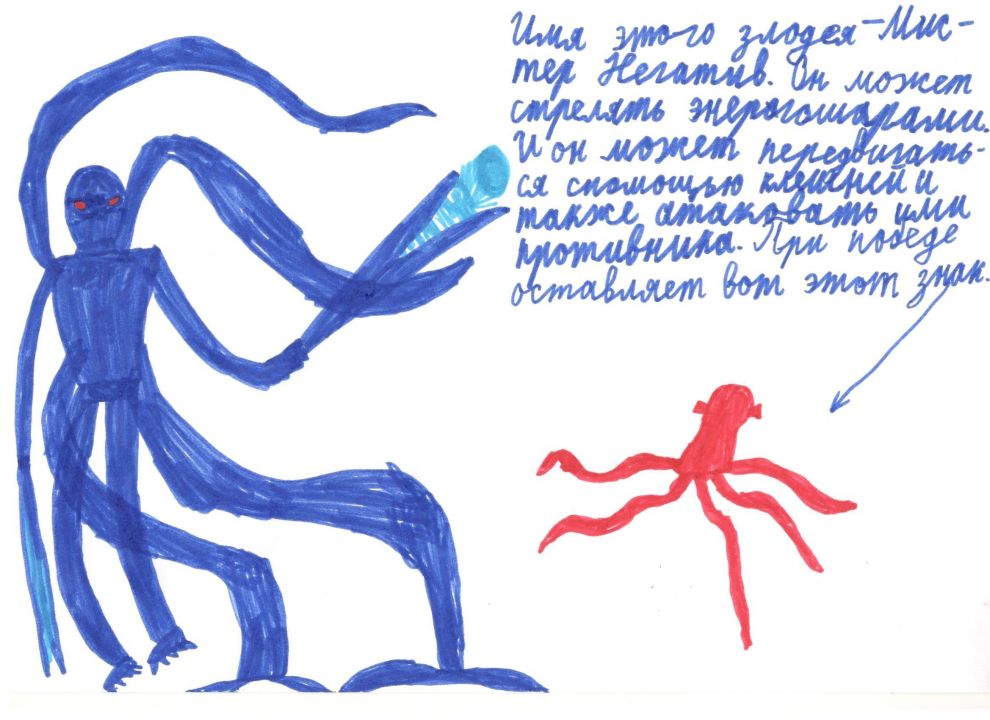 Имя этого злодея – Мис-
тер Негатив. Он может
стрелять энерогошарами.
И он может передвигать-
ся спомощью клешней и
также атаковать ими
противника. При победе
оставляет вот этот знак.